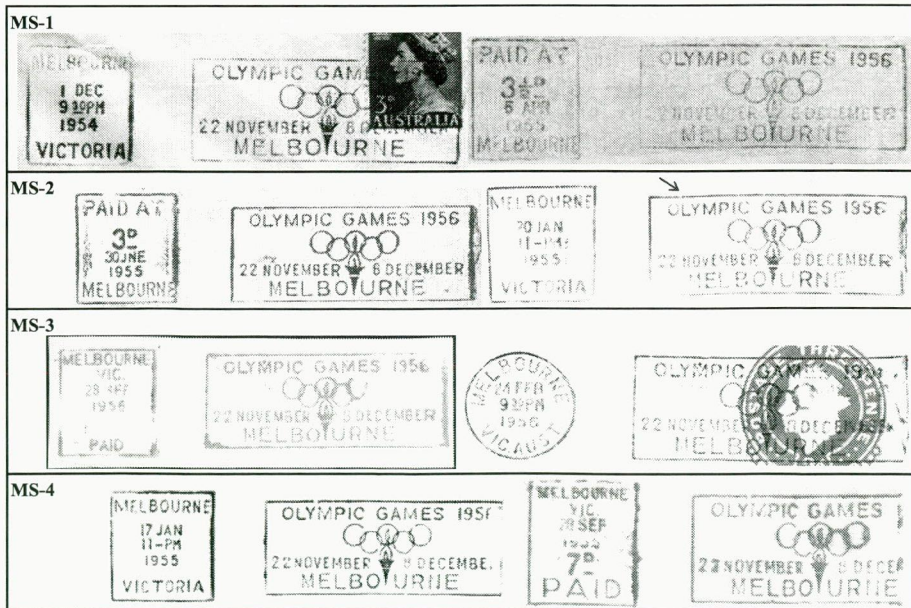 MS-1
MELBOURNE
1 DEC
9 30PM
1954
VICTORIA
OLYMPIC GAMES
3D
AUSTRALIA
22 NOVEMBER 8 DECEMBER
MELBOURNE
PAID AT
3½D
6 APR
1955
MELBOURNE
OLYMPIC GAMES 1956
22 NOVEMBER 8 DECEMBER
MELBOURNE
MS-2
PAID AT
3D
30 JNE
1955
MELBOURNE
OLYMPIC GAMES 1956
22 NOVEMBER 8 DECEMBER
MELBOURNE
MELBOURNE
20 JAN
11-PM
1955
VICTORIA
OLYMPIC GAMES 1956
22 NOVEMBER 8 DECEMBER
MELBOURNE
MS-3
MELBOURNE
VIC.
28 SEP
1956
PAID
OLYMPIC GAMES 1956
22 NOVEMBER 8 DECEMBER
MELBOURNE
MELBOURNE
24 FEB
9 30PM
1956
VIC AUST
OLYMPIC GAMES
22 NOVEMBER 8 DECEMBER
MELBOURNE
MS-4
MELBOURNE
17 JAN
11-PM
1955
VICTORIA
OLYMPIC GAMES 195
22 NOVEMBER 8 DECEMBE
MELBOURNE
MELBOURNE
VIC.
28 SEP
7D
PAID
OLYMPIC GAMES
22 NOVEMBER 8 DECE
MELBOURNE